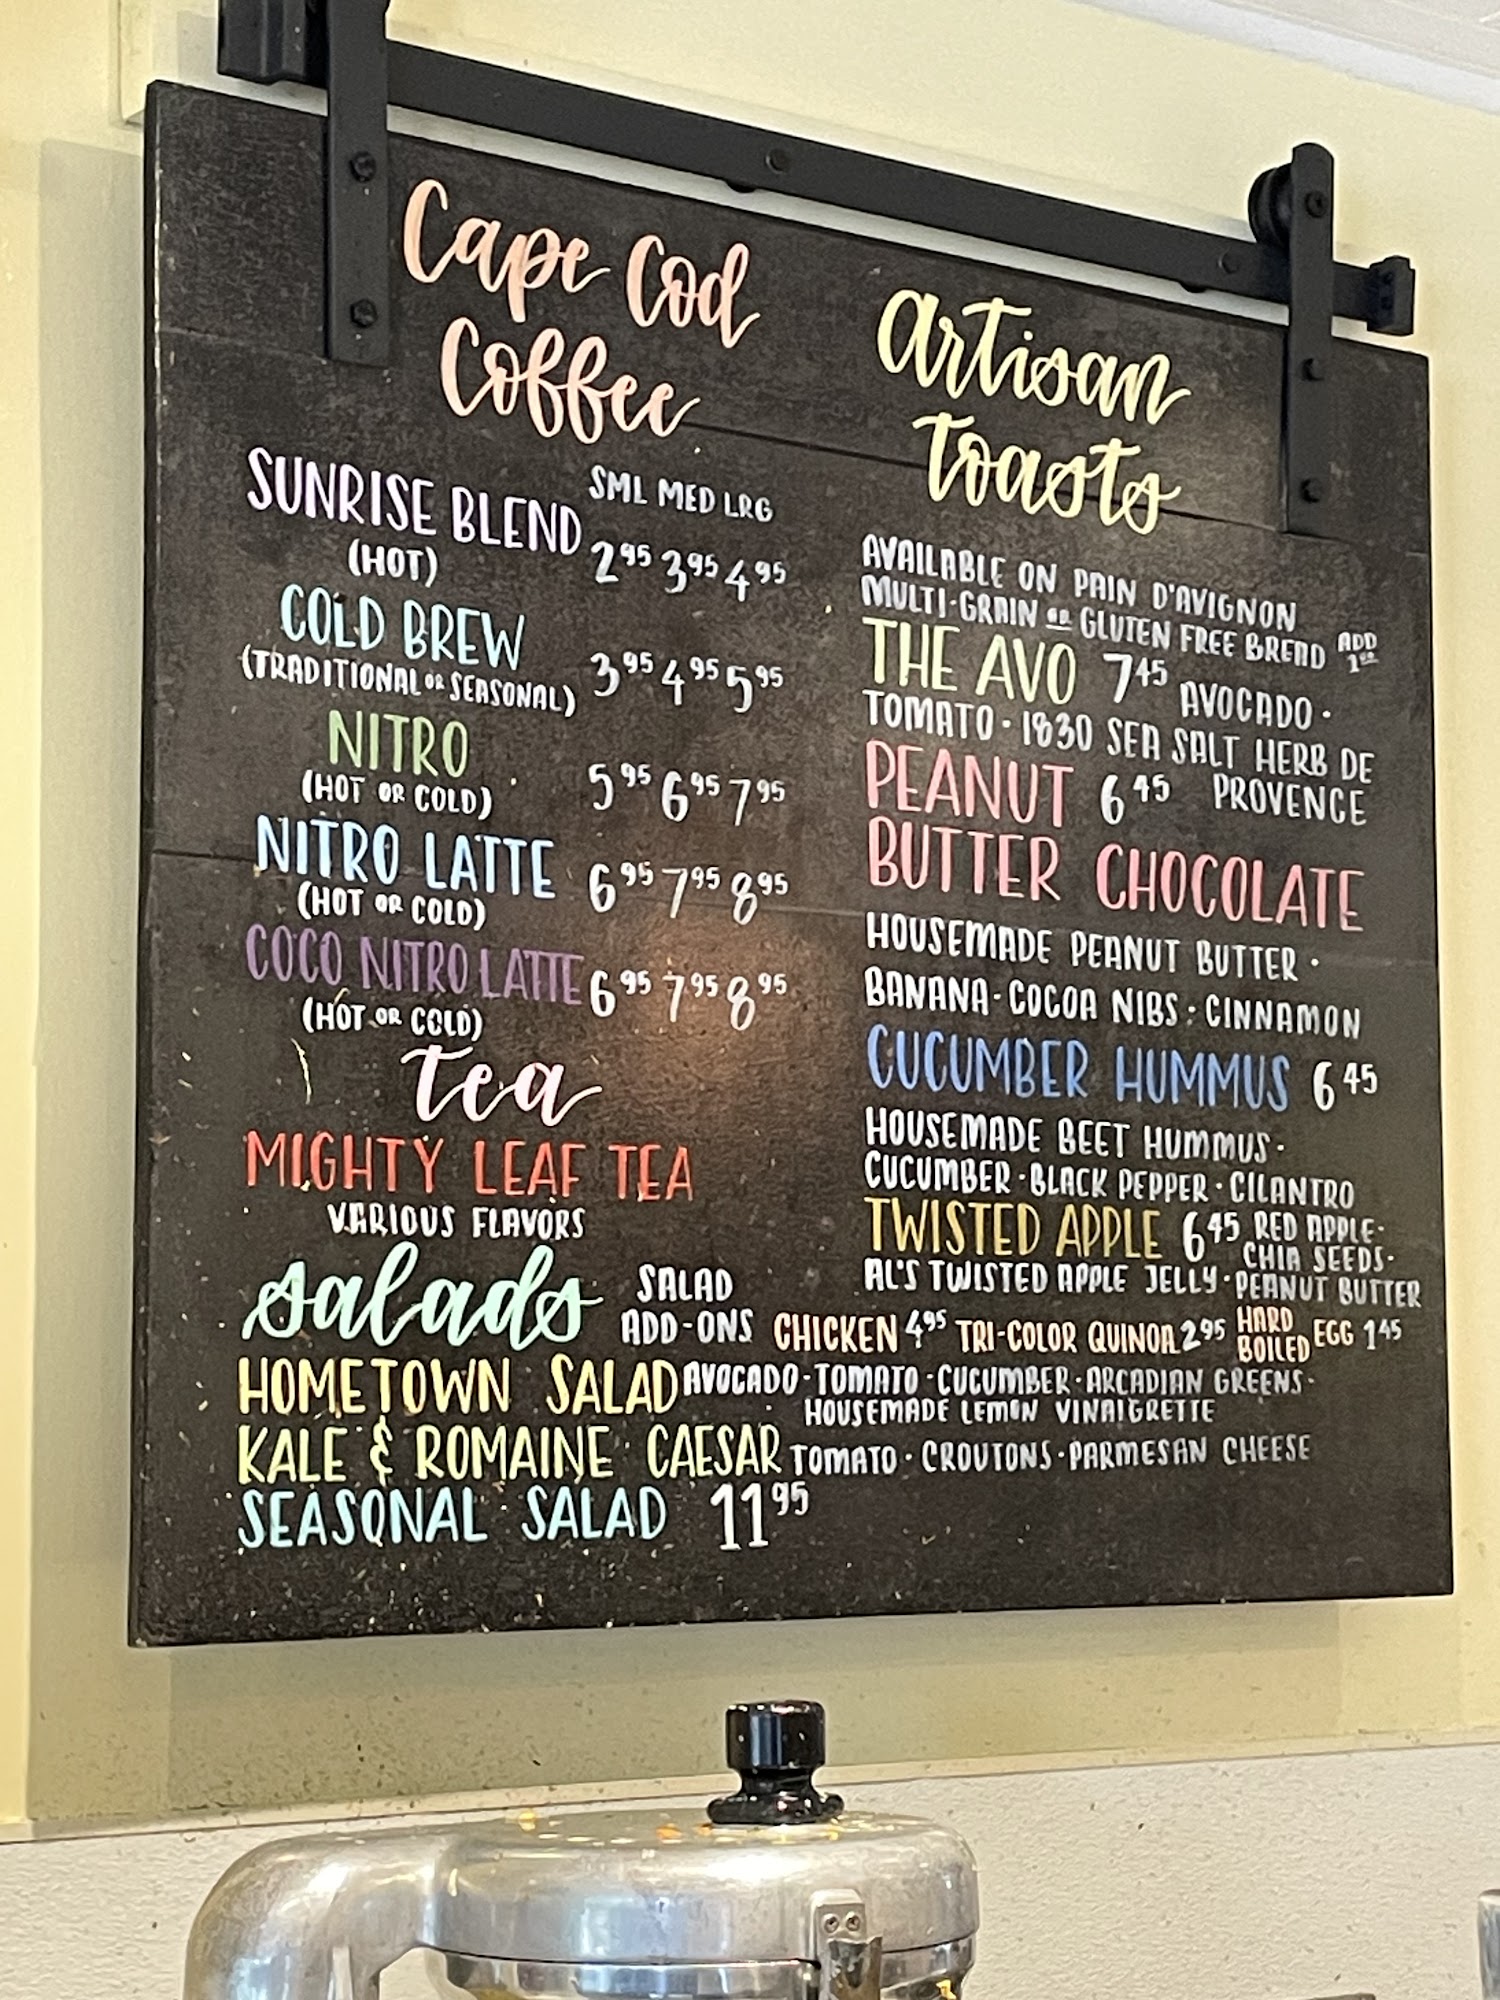 Cape Cod
Coffee
SML MED LRG
SUNRISE BLEND 2.95 3.95 4.95
(HOT)
COLD BREW
(TRADITIONAL OR SEASONAL) 3.95 4.95 5.95
NITRO
(HOT OR COLD) 5.95 6.95 7.95
NITRO LATTE 6.95 7.95 8.95
(HOT OR COLD)
COCO NITRO LATTE 6.95 7.95 8.95
(HOT OR COLD)
tea
MIGHTY LEAF TEA
VARIOUS FLAVORS
artisan
toasts
AVAILABLE ON PAIN D'AVIGNON
MULTI-GRAIN OR GLUTEN FREE BREAD ADD
THE AVO 7.45 AVOCADO·
TOMATO·1830 SEA SALT HERB DE
PROVENCE
PEANUT 6.45
BUTTER CHOCOLATE
HOUSEMADE PEANUT BUTTER·
BANANA·COCOA NIBS·CINNAMON
CUCUMBER HUMMUS 6.45
HOUSEMADE BEET HUMMUS·
CUCUMBER·BLACK PEPPER·CILANTRO
TWISTED APPLE 6.45 RED APPLE·
CHIA SEEDS·
AL'S TWISTED APPLE JELLY·PEANUT BUTTER
salads SALAD
ADD-ONS CHICKEN 4.95 TRI-COLOR QUINOA 2.95 HARD BOILED EGG 1.45
HOMETOWN SALAD AVOCADO·TOMATO·CUCUMBER·ARCADIAN GREENS·
HOUSEMADE LEMON VINAIGRETTE
KALE & ROMAINE CAESAR TOMATO·CROUTONS·PARMESAN CHEESE
SEASONAL SALAD 11.95